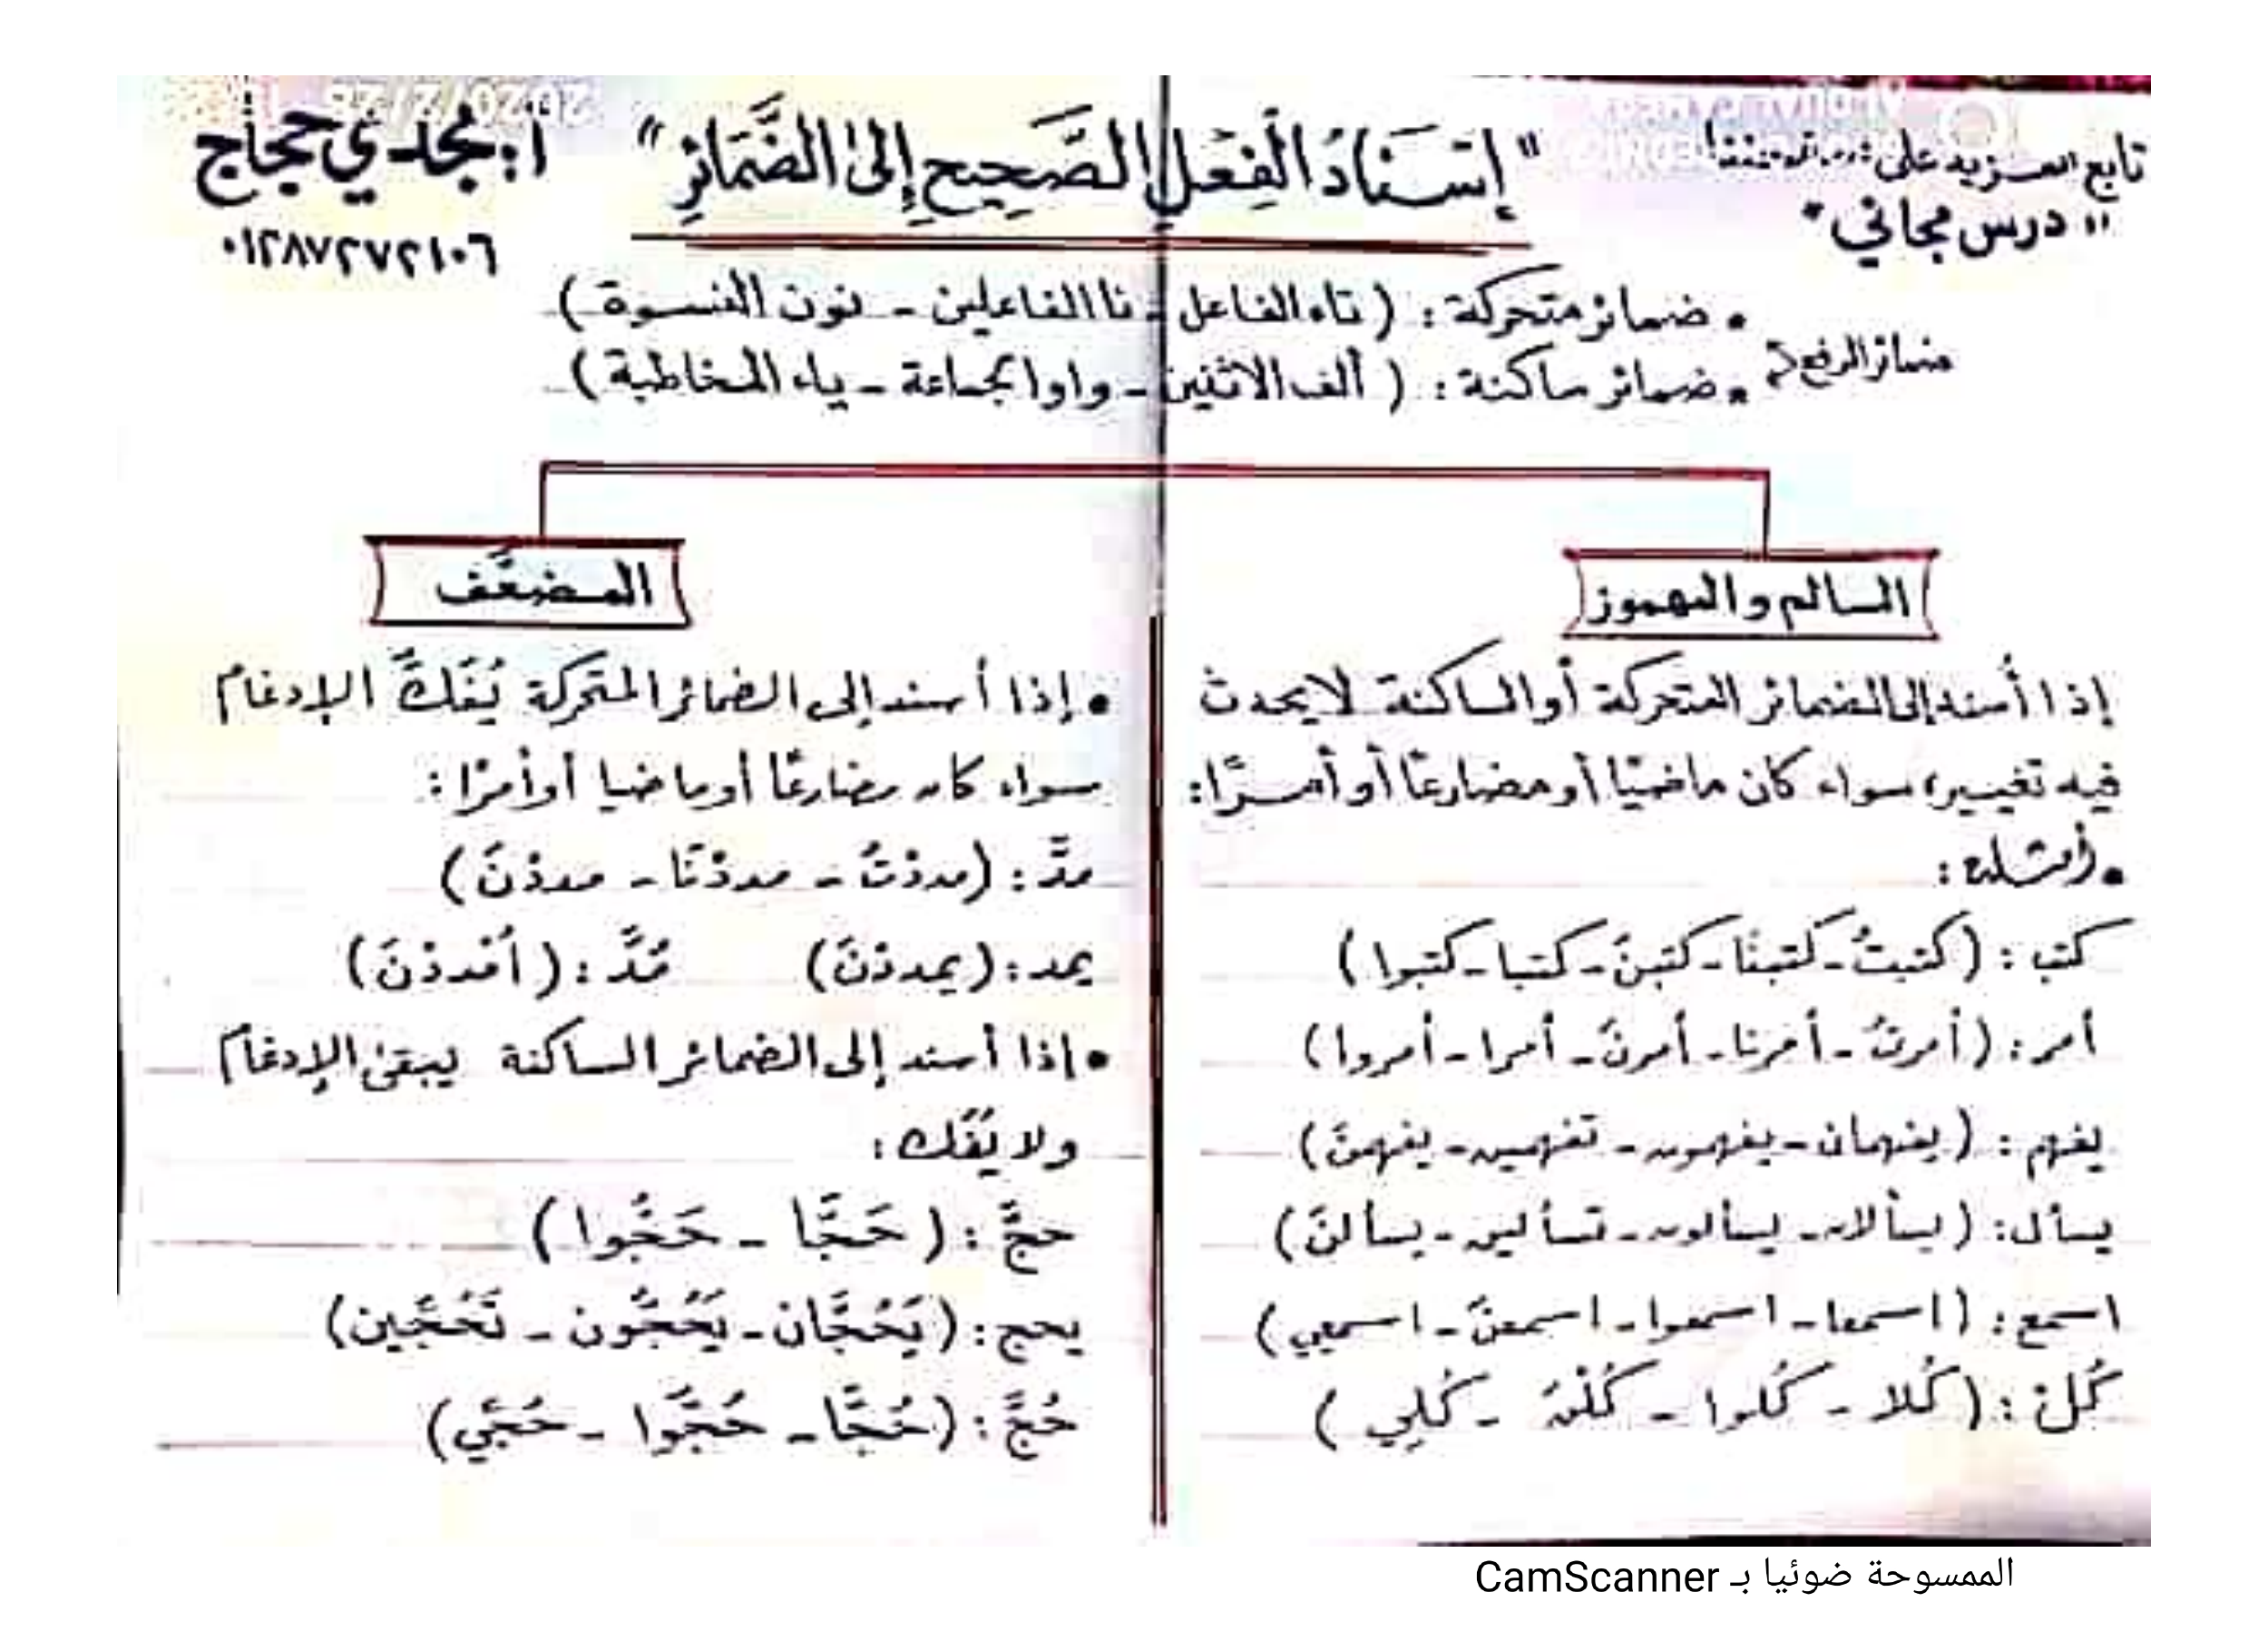 تابع المزيد على
"درس مجاني"
"إِسْنَادُ الْفِعْلِ الصَّحِيحِ إِلىٰ الضَّمَائِرِ"
أ: مجدي حجاج
٠١٢٨٧٢٧٢١٠٦
ضمائر الرفع
• ضمائر متحركة: (تاء الفاعل - نا الفاعلين - نون النسوة)
• ضمائر ساكنة: (ألف الاثنين - واو الجماعة - ياء المخاطبة)
السالم والمهموز
إذا أُسند إلى الضمائر المتحركة أو الساكنة لا يحدث
فيه تغيير، سواء كان ماضيًا أو مضارعًا أو أمرًا:
• أمثلة:
كتب: (كتبتُ - كتبنَا - كتبنَ - كتبا - كتبوا)
أمر: (أمرتُ - أمرنا - أمرنَ - أمرا - أمروا)
يفهم: (يفهمان - يفهمون - تفهمين - يفهمنَ)
يسأل: (يسألان - يسألون - تسألين - يسألنَ)
اسمع: (اسمعا - اسمعوا - اسمعنَ - اسمعي)
كُلْ: (كُلا - كُلوا - كُلْنَ - كُلِي)
المضعَّف
• إذا أسند إلى الضمائر المتحركة يُفَكُّ الإدغامُ
سواء كان مضارعًا أو ماضيا أو أمرًا:
مدَّ: (مددْتُ - مددْنَا - مددْنَ)
يمد: (يمددْنَ) مُدَّ: (اُمْددْنَ)
• إذا أسند إلى الضمائر الساكنة يبقىٰ الإدغامُ
ولا يُفَك:
حجَّ: (حَجَّا - حَجُّوا)
يحج: (يَحُجَّان - يَحُجُّون - تَحُجِّين)
حُجَّ: (حُجَّا - حُجُّوا - حُجِّي)
الممسوحة ضوئيا بـ CamScanner